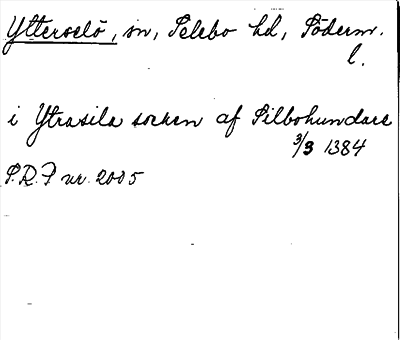 Ytterselö, sn, Selebo hd, Söderm.
l.
i Ytrasila socken af Silbohundare
3/3 1384
S.R.P nr. 2005